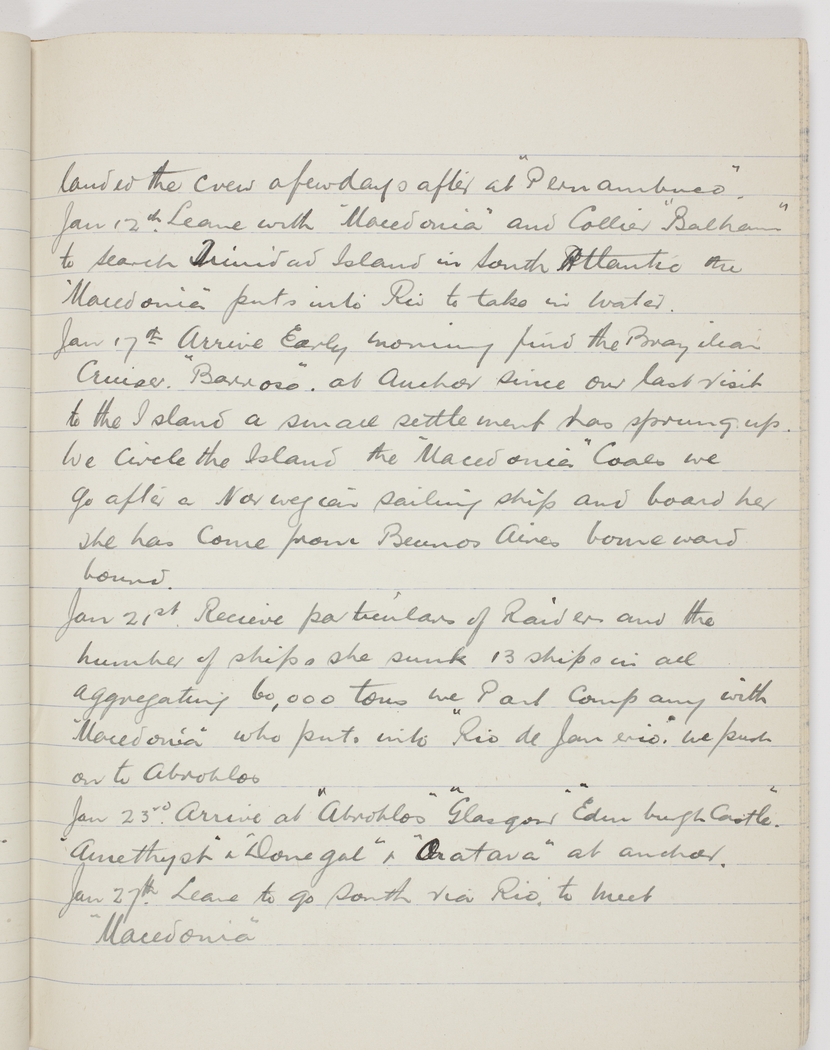 landed the crew a few days after at "Pernambuco".
Jan 12th. Leave with "Macedonia" and Collier "Balham"
to search Trinidad Island in South Atlantic the
"Macedonia" puts into Rio to take in water.
Jan 17th Arrive Early morning find the Brazilian
Cruiser. "Barroso". at Anchor since our last visit
to the Island a small settlement has sprung up.
We Circle the Island the "Macedonia" Coals we
go after a Norwegian sailing ship and board her
she has Come from Beunos Aires homeward
bound.
Jan 21st. Recieve particulars of Raiders and the
number of ships she sunk 13 ships in all
aggregating 60,000 tons we Part Company with
"Macedonia" who puts into "Rio de Janerio". we push
on to Abrohlos
Jan 23rd. Arrive at "Abrohlos" "Glasgow" "Edinburgh Castle".
"Amethyst" & "Donegal" & "Oratava" at anchor.
Jan 27th. Leave to go South via Rio. to meet
"Macedonia"